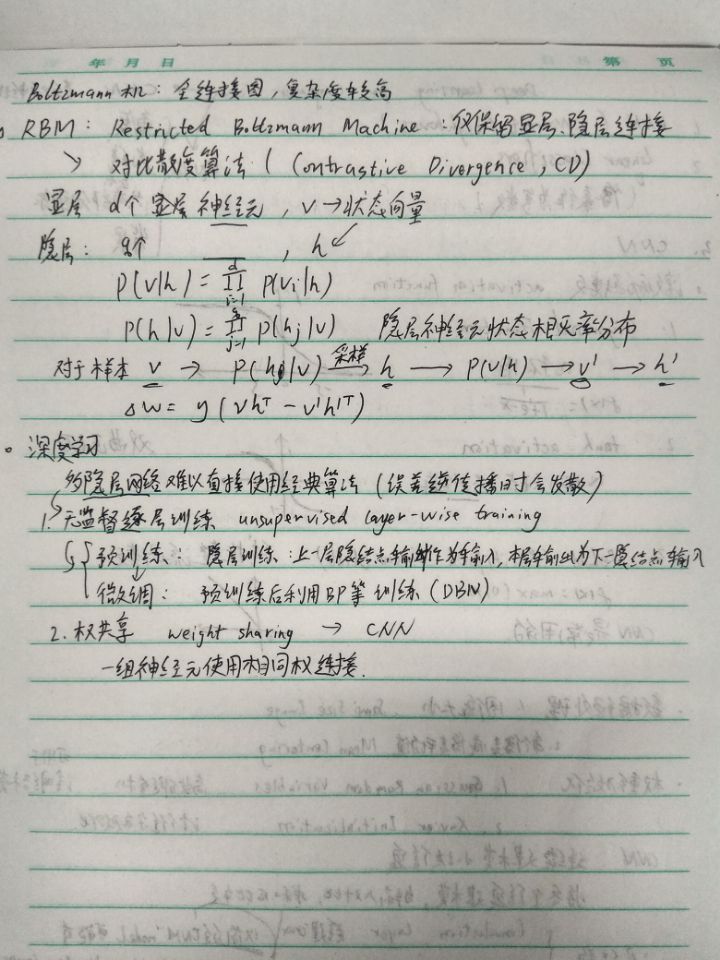 年 月 日 第 页
Boltzmann 机：全连接图，复杂度较高
RBM：Restricted Boltzmann Machine：仅保留显层、隐层连接
↘ 对比散度算法 ( Contrastive Divergence, CD)
显层 d个 显层 神经元，v → 状态向量
隐层：q个 ____，h ↙
P(v|h) = ∏_{i=1}^{d} P(vi|h)
P(h|v) = ∏_{j=1}^{q} P(hj|v) 隐层神经元状态概率分布
对于样本 v → P(hj|v) 采样→ h → P(v|h) → v' → h'
Δw = y (vhᵀ - v'h'ᵀ)
• 深度学习
多隐层网络难以直接使用经典算法（误差逆传播时会发散）
1. 无监督逐层训练 unsupervised layer-wise training
{ 预训练：隐层训练：上一层隐结点输出作为输入，本层输出为下一隐结点输入
微调：预训练后利用BP等训练（DBN）
2. 权共享 weight sharing → CNN
一组神经元使用相同权连接.